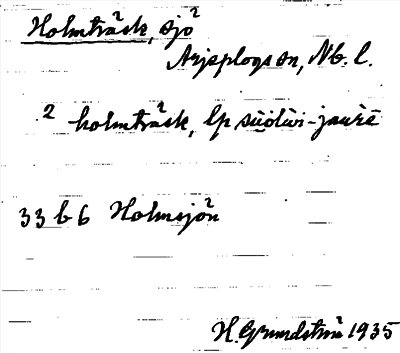 Holmträsk, sjö
Arjeplogs sn, Nb. l.
² holmträsk, lp suolui-jaurē
33 b 6 Holmsjön
H. Grundström 1935